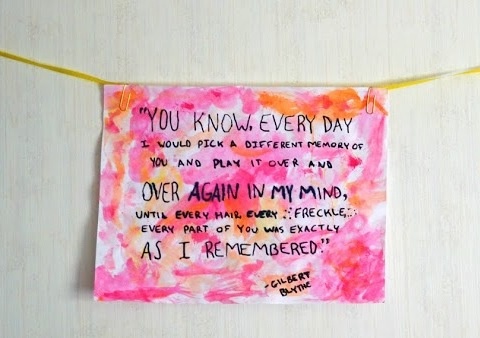 "YOU KNOW, EVERY DAY
I WOULD PICK A DIFFERENT MEMORY OF
YOU AND PLAY IT OVER AND
OVER AGAIN IN MY MIND,
UNTIL EVERY HAIR, EVERY FRECKLE,
EVERY PART OF YOU WAS EXACTLY
AS I REMEMBERED."
-GILBERT
BLYTHE